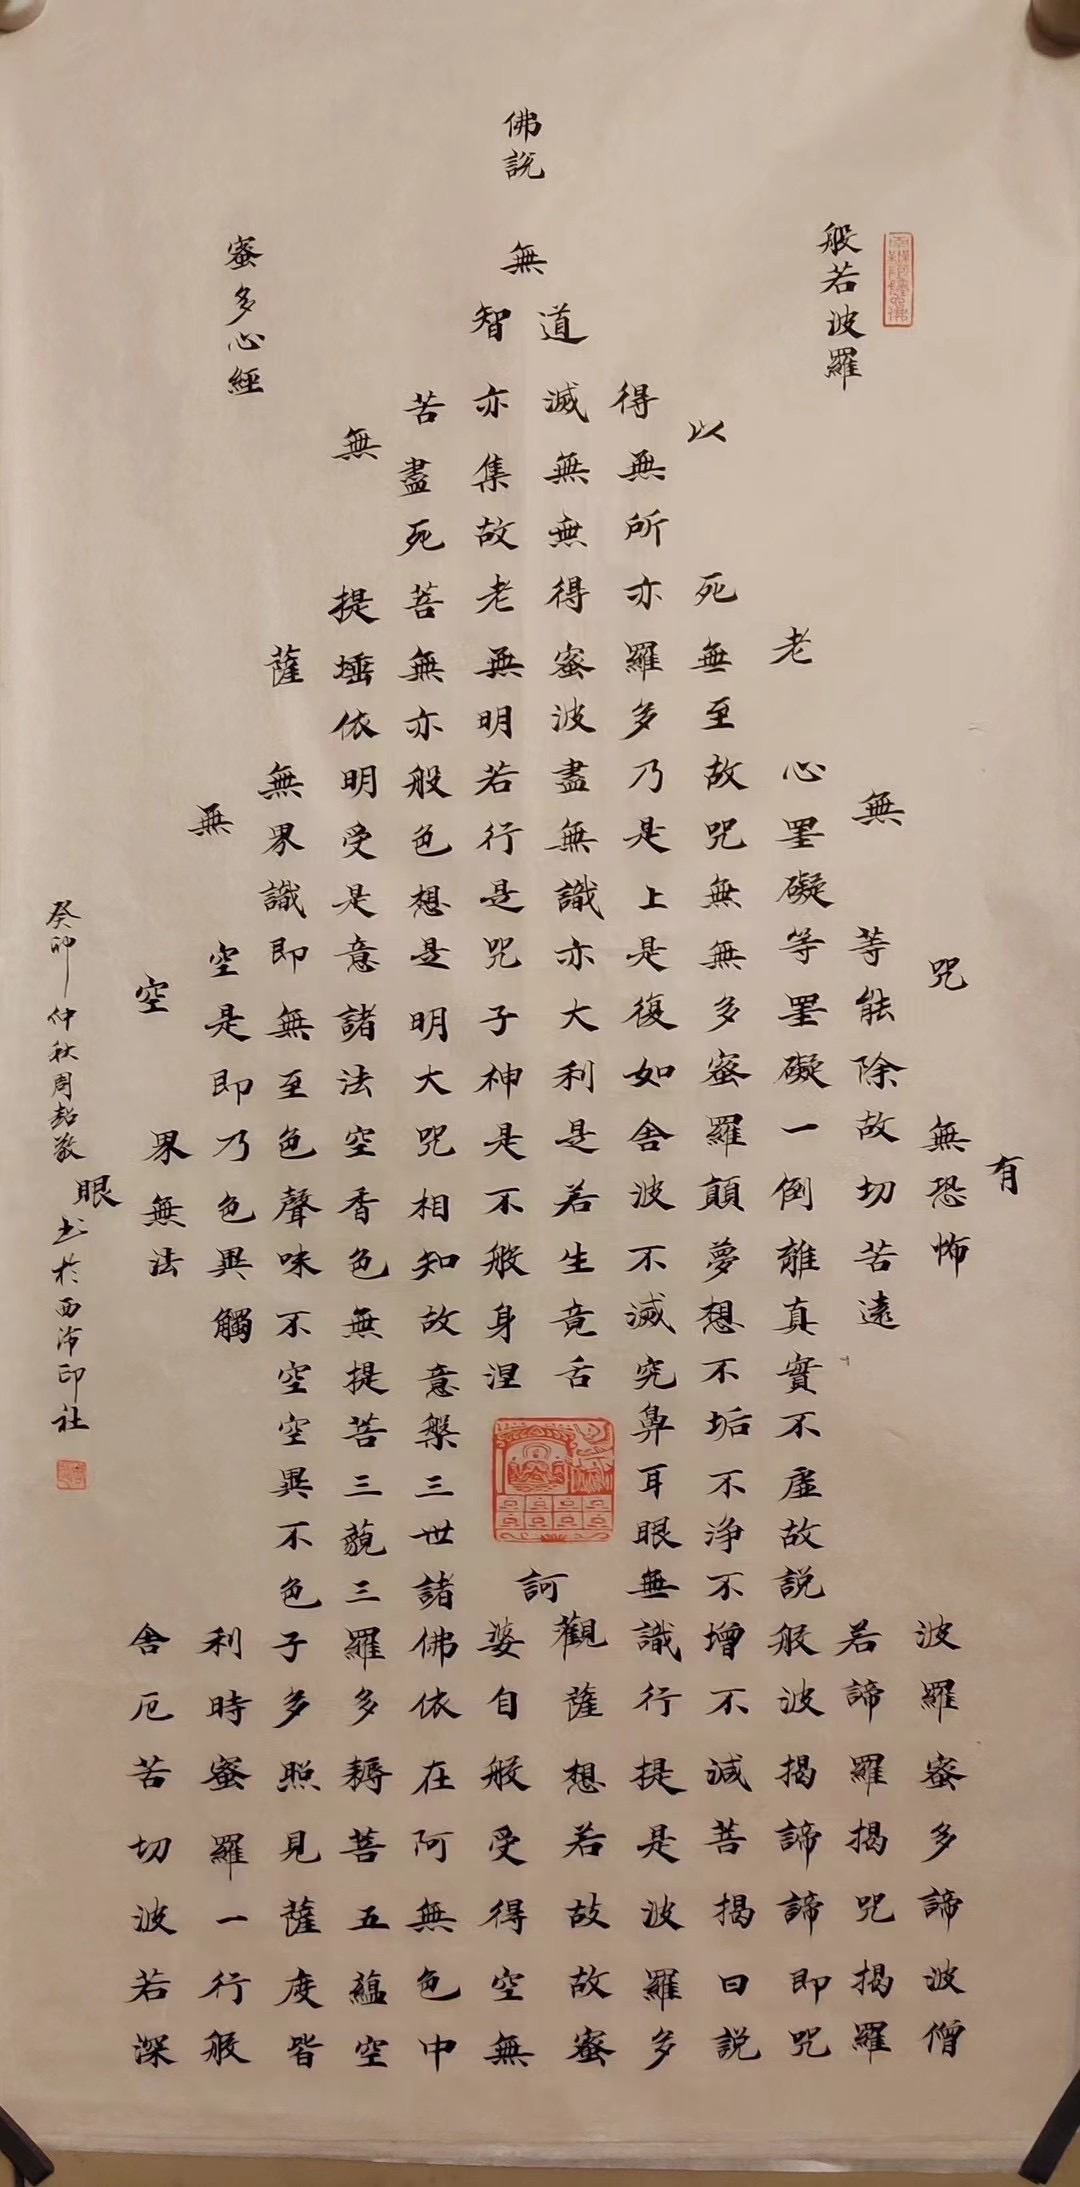 佛說
般若波羅
蜜多心經
有
咒無恐怖波羅蜜多諦波僧
無等能除故切苦遠若諦羅揭咒揭羅
老心罣礙等罣礙一倒離真實不虛故説般波揭諦諦即咒
以死無至故咒無無多蜜羅顛夢想不垢不淨不增不減菩揭曰説
得無所亦羅多乃是上是復如舍波不滅究鼻耳眼無識行提是波羅多
道滅無無得蜜波盡無識亦大利是若生竟舌訶觀薩想若故故蜜
無智亦集故老無明若行是咒子神是不般身涅婆自般受得空無
苦盡死菩無亦般色想是明大咒相知故意槃三世諸佛依在阿無色中
無提埵依明受是意諸法空香色無提菩三藐三羅多耨菩五蘊空
薩無界識即無至色聲味不空空異不色子多照見薩度皆
無空是即乃色異觸利時蜜羅一行般
空界無法舍厄苦切波若深
眼
癸卯仲秋周敬书於西泠印社